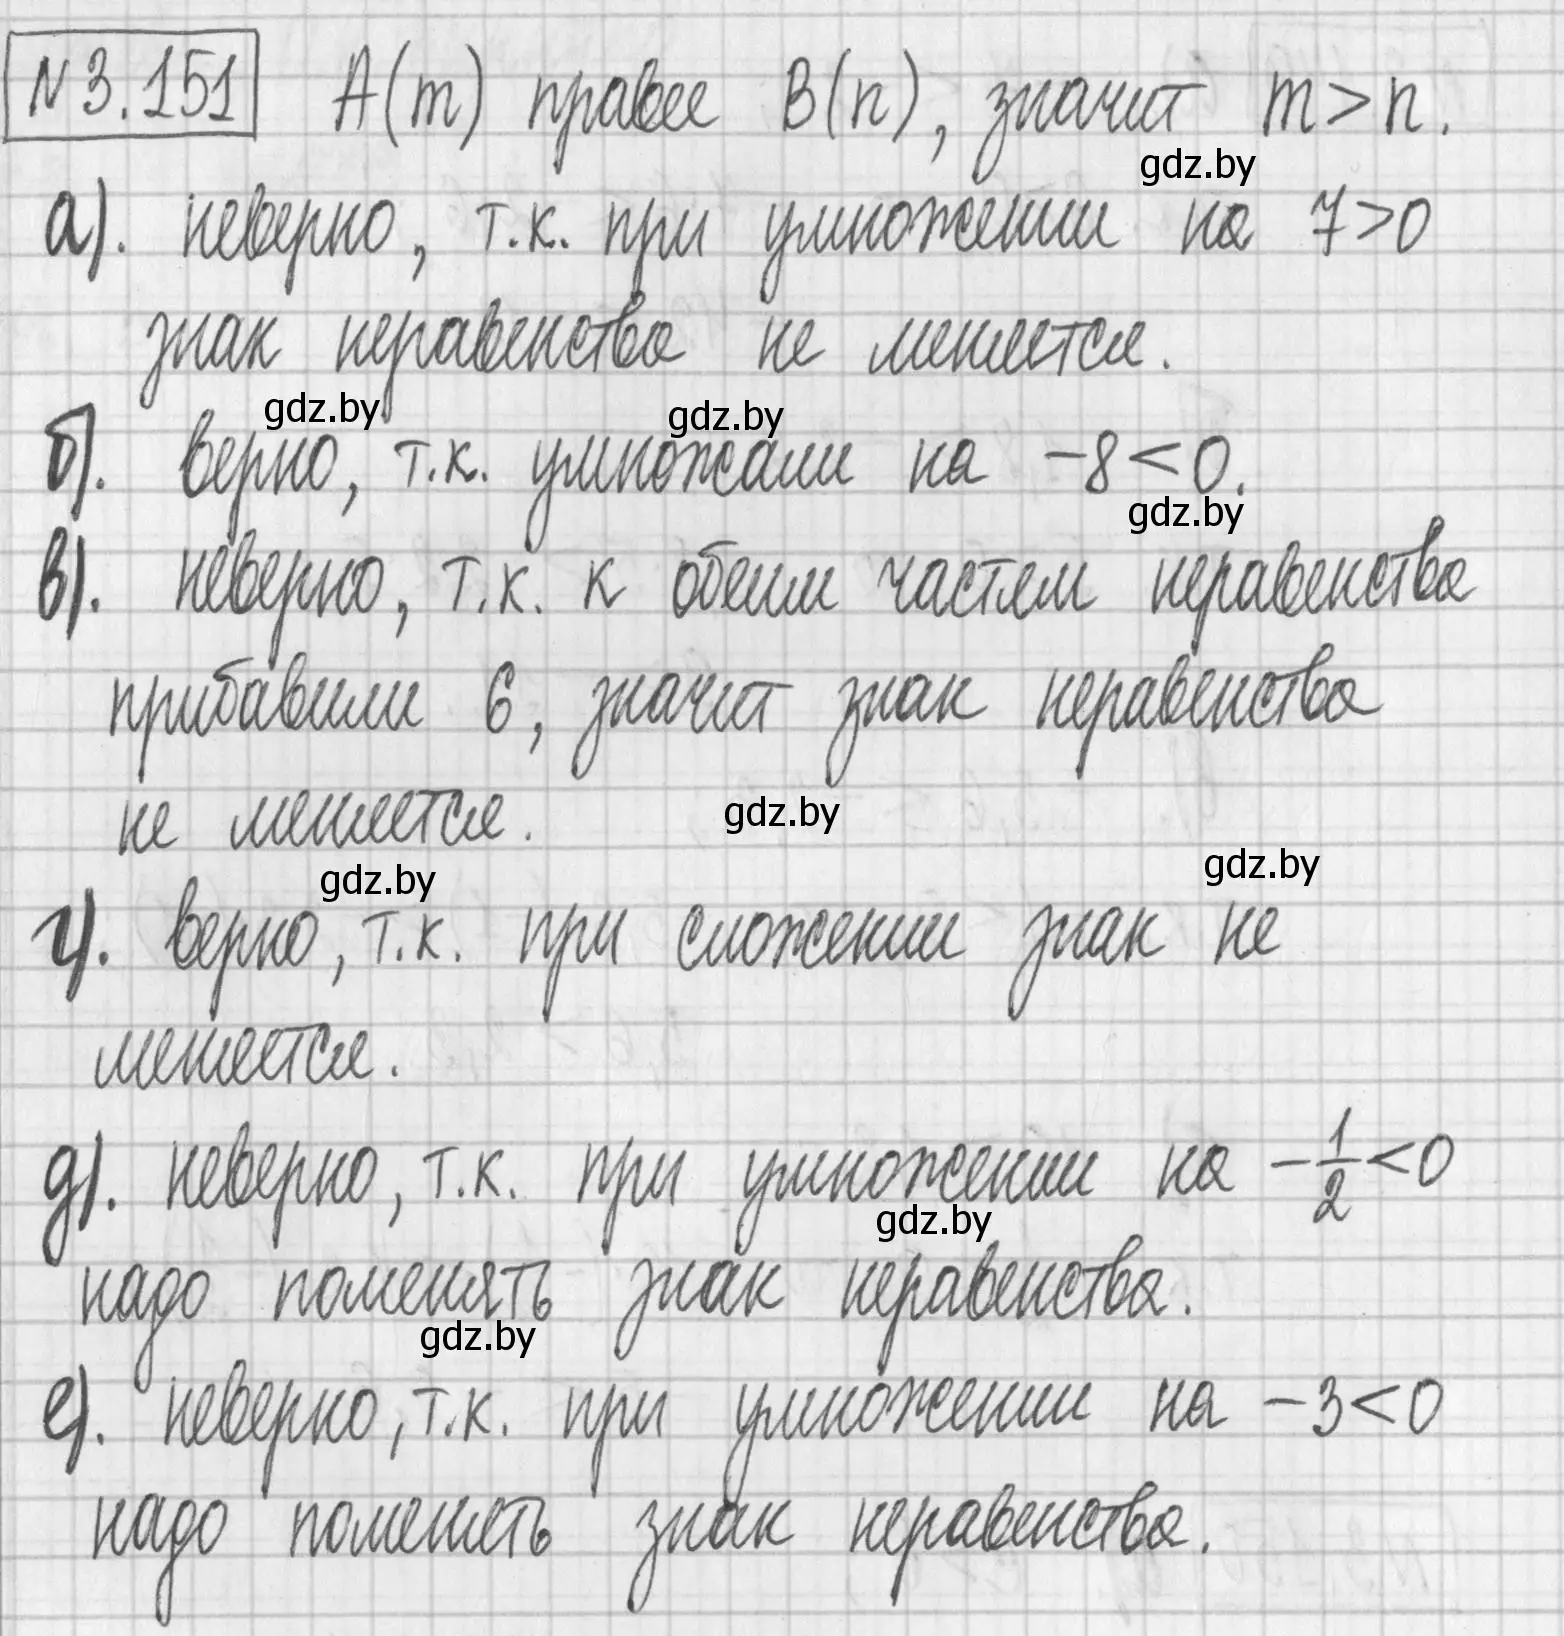 №3.151 A(m) правее B(n), значит m>n.
gdz.by
а). неверно, т.к. при умножении на 7>0
знак неравенства не меняется.
gdz.by gdz.by
б). верно, т.к. умножали на -8<0.
gdz.by
в). неверно, т.к. к обеим частям неравенства
прибавили 6, значит знак неравенства
не меняется.
gdz.by
gdz.by gdz.by
г). верно, т.к. при сложении знак не
меняется.
д). неверно, т.к. при умножении на -1/2<0
gdz.by
надо поменять знак неравенства.
gdz.by
е). неверно, т.к. при умножении на -3<0
надо поменять знак неравенства.